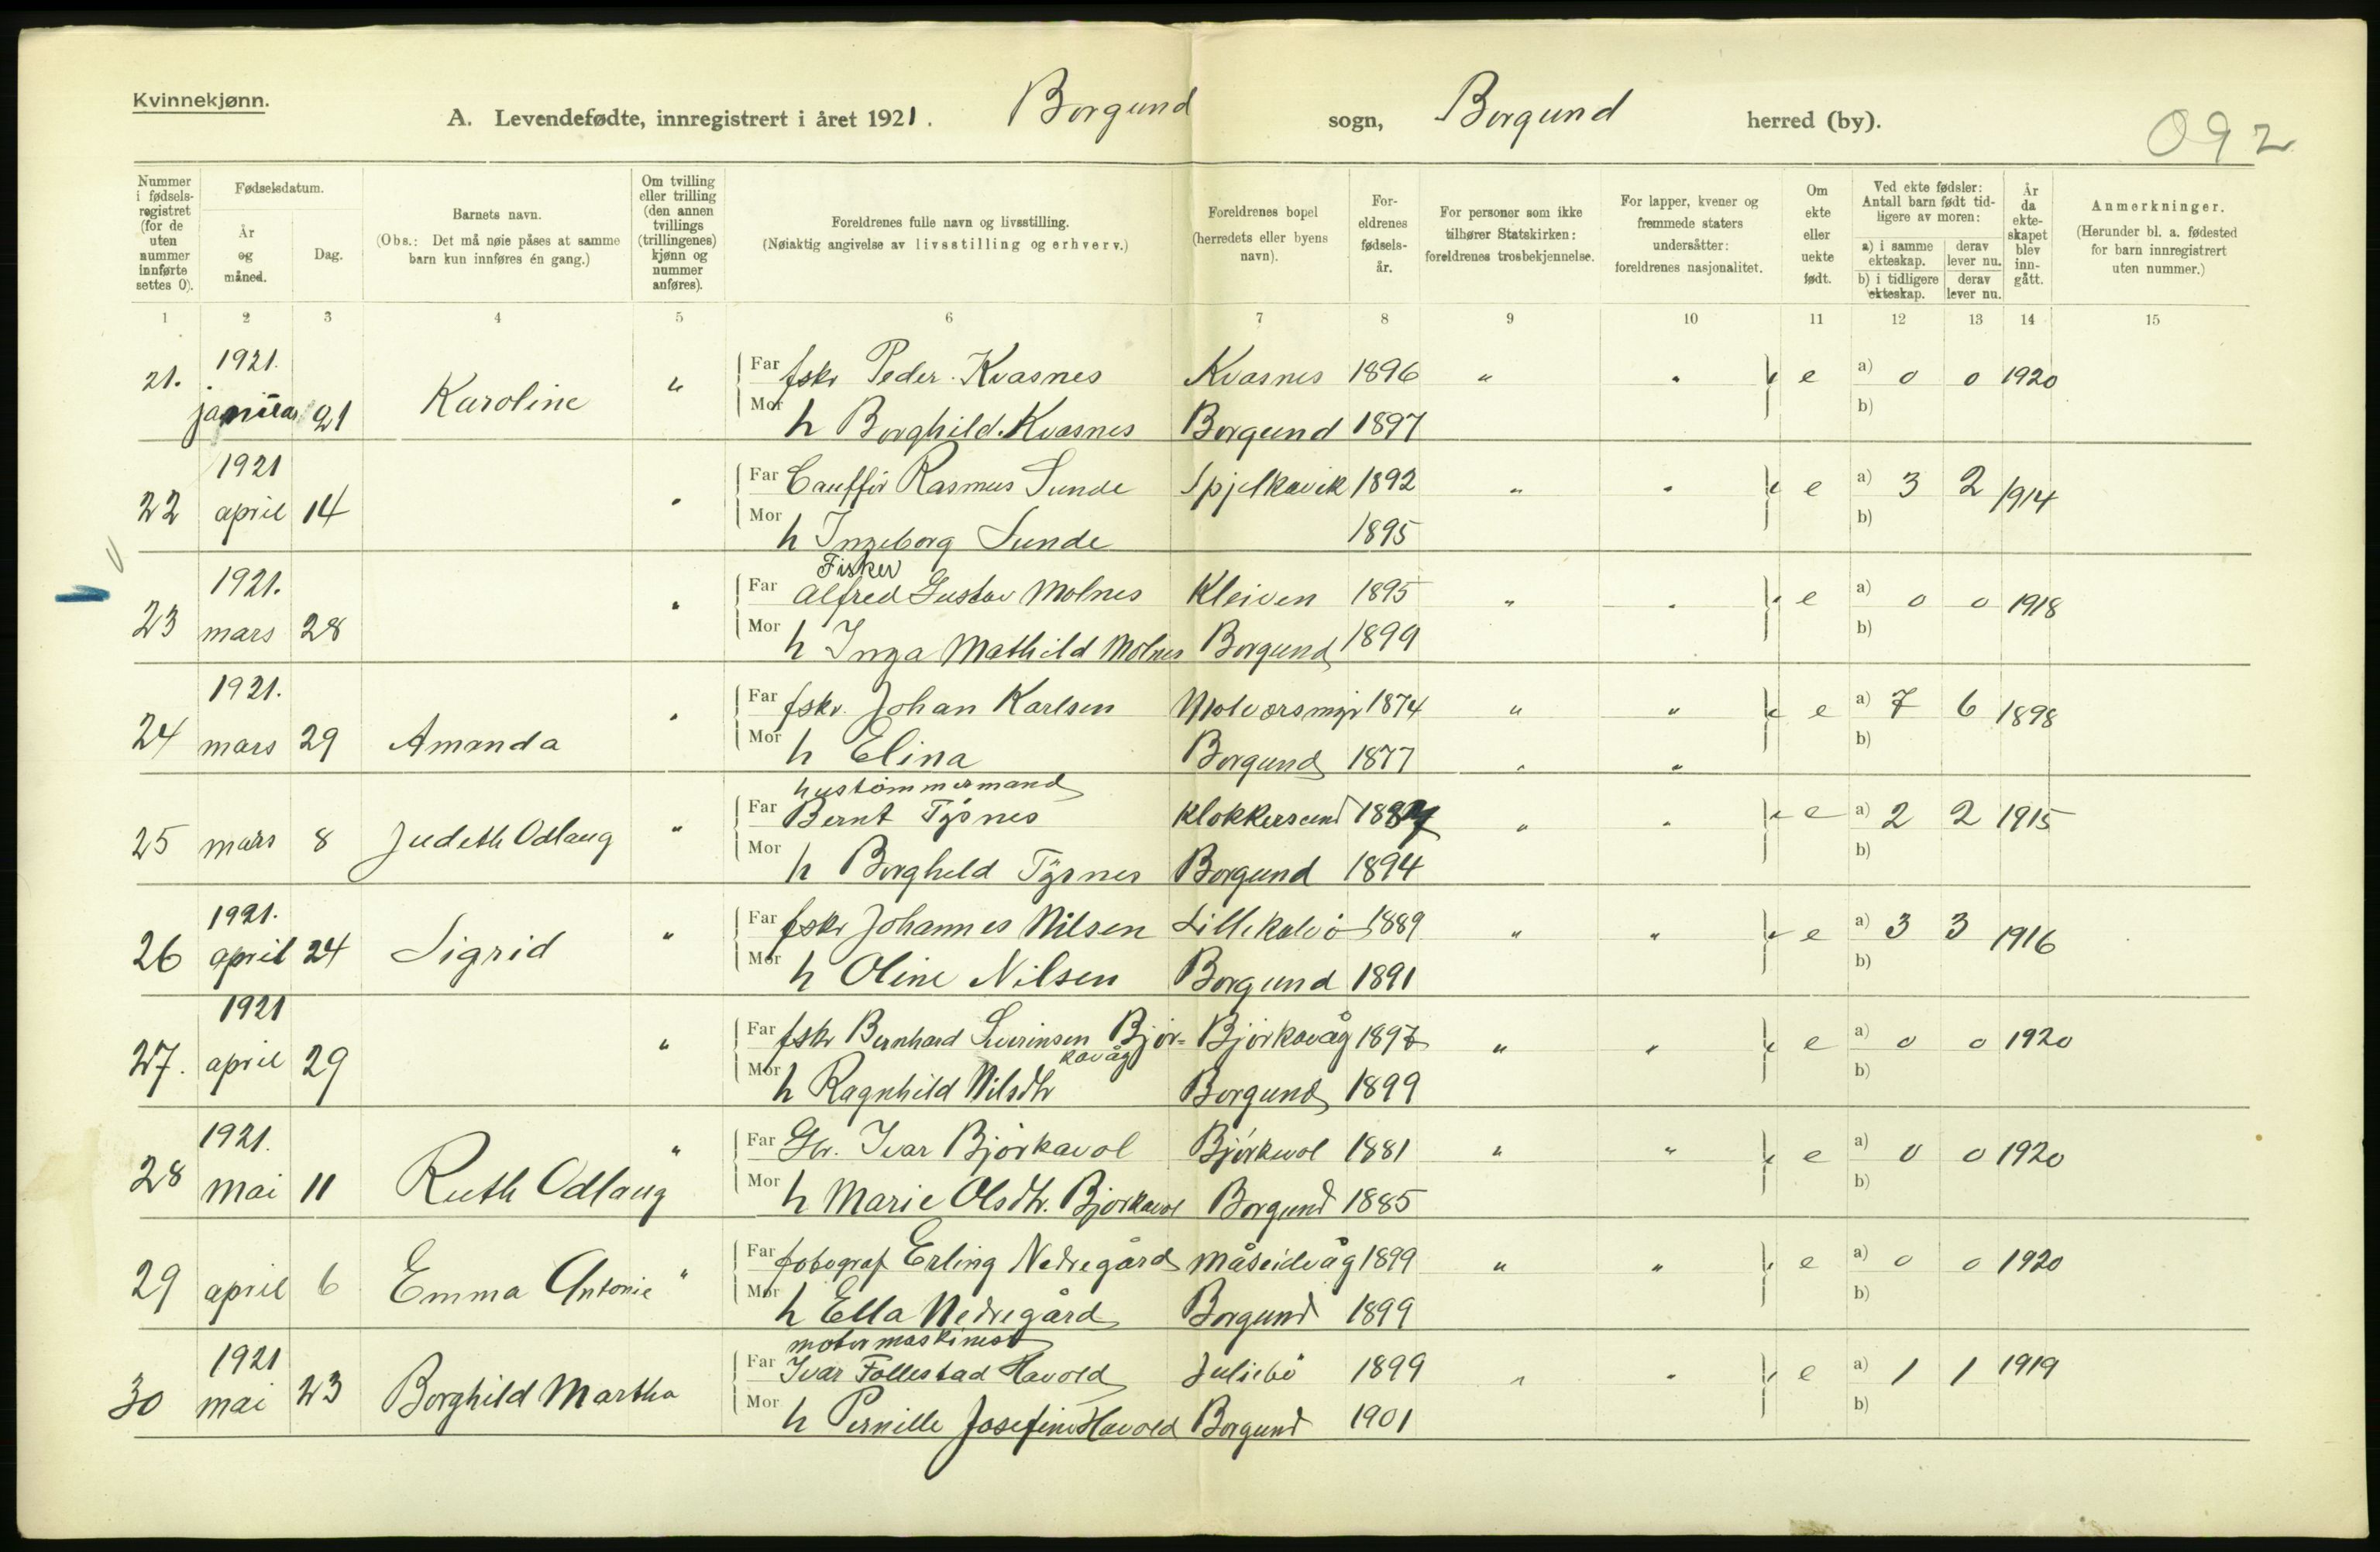 Kvinnekjønn.
A. Levendefødte, innregistrert i året 1921. Borgund sogn, Borgund herred (by).
092
Nummer i fødsels-registret (for de uten nummer innførte settes 0).
Fødselsdatum.
År og måned.
Dag.
Barnets navn.
(Obs.: Det må nøie påses at samme barn kun innføres én gang.)
Om tvilling eller trilling (den annen tvillings (trillingenes) kjønn og nummer anføres).
Foreldrenes fulle navn og livsstilling.
(Nøiaktig angivelse av livsstilling og erhverv.)
Foreldrenes bopel (herredets eller byens navn).
For-eldrenes fødsels-år.
For personer som ikke tilhører Statskirken: foreldrenes trosbekjennelse.
For lapper, kvener og fremmede staters undersåtter: foreldrenes nasjonalitet.
Om ekte eller uekte født.
Ved ekte fødsler: Antall barn født tid-ligere av moren:
a) i samme ekteskap.
derav lever nu.
b) i tidligere ekteskap.
derav lever nu.
År da ekte-skapet blev inn-gått.
Anmerkninger.
(Herunder bl. a. fødested for barn innregistrert uten nummer.)
1 2 3 4 5 6 7 8 9 10 11 12 13 14 15
21. 1921. januar 21 Karoline " Far fskr Peder Kvasnes Kvasnes 1896 " " e a) 0 0 1920
Mor h Borghild Kvasnes Borgund 1897 b)
22 1921 april 14 " Far Cauffør Rasmus Sunde Spjelkavik 1892 " " e a) 3 2 1914
Mor h Ingeborg Sunde 1895 b)
Fisker
23 1921. mars 28 " Far Alfred Gustav Molnes Kleiven 1895 " " e a) 0 0 1918
Mor h Inga Mathild Molnes Borgund 1899 b)
24 1921. mars 29 Amanda " Far fskr. Johan Karlsen Molværsmyr 1874 " " e a) 7 6 1898
Mor h Elina Borgund 1877 " " b)
hustømmermand
25 mars 8 Judeth Odlaug " Far Bernt Tysnes Klokkersund " " e a) 2 2 1915
Mor h Borghild Tysnes Borgund 1894 b)
26 1921. april 24 Sigrid " Far fskr Johannes Nilsen Lillekalvø 1889 " " e a) 3 3 1916
Mor h Oline Nilsen Borgund 1891 b)
27. 1921 april 29 " Far fskr Bernhard Severinsen Bjør= Bjørkavåg 1897 " " e a) 0 0 1920
kavåg
Mor h Ragnhild Nilsdtr Borgund 1899 b)
28 1921. mai 11 Ruth Odlaug " Far Gbr. Ivar Bjørkavol Bjørkavol 1881 " " e a) 0 0 1920
Mor h Marie Olsdtr. Bjørkavol Borgund 1885 b)
29 april 6 Emma Antonie " Far fotograf Erling Nedregård Måseidvåg 1899 " " e a) 0 0 1920
Mor h Ella Nedregård Borgund 1899 b)
motormaskinist
30 1921 mai 23 Borghild Martha Far Ivar Follestad Havold Juliebø 1899 " " e a) 1 1 1919
Mor h Pernille Josefine Havold Borgund 1901 b)